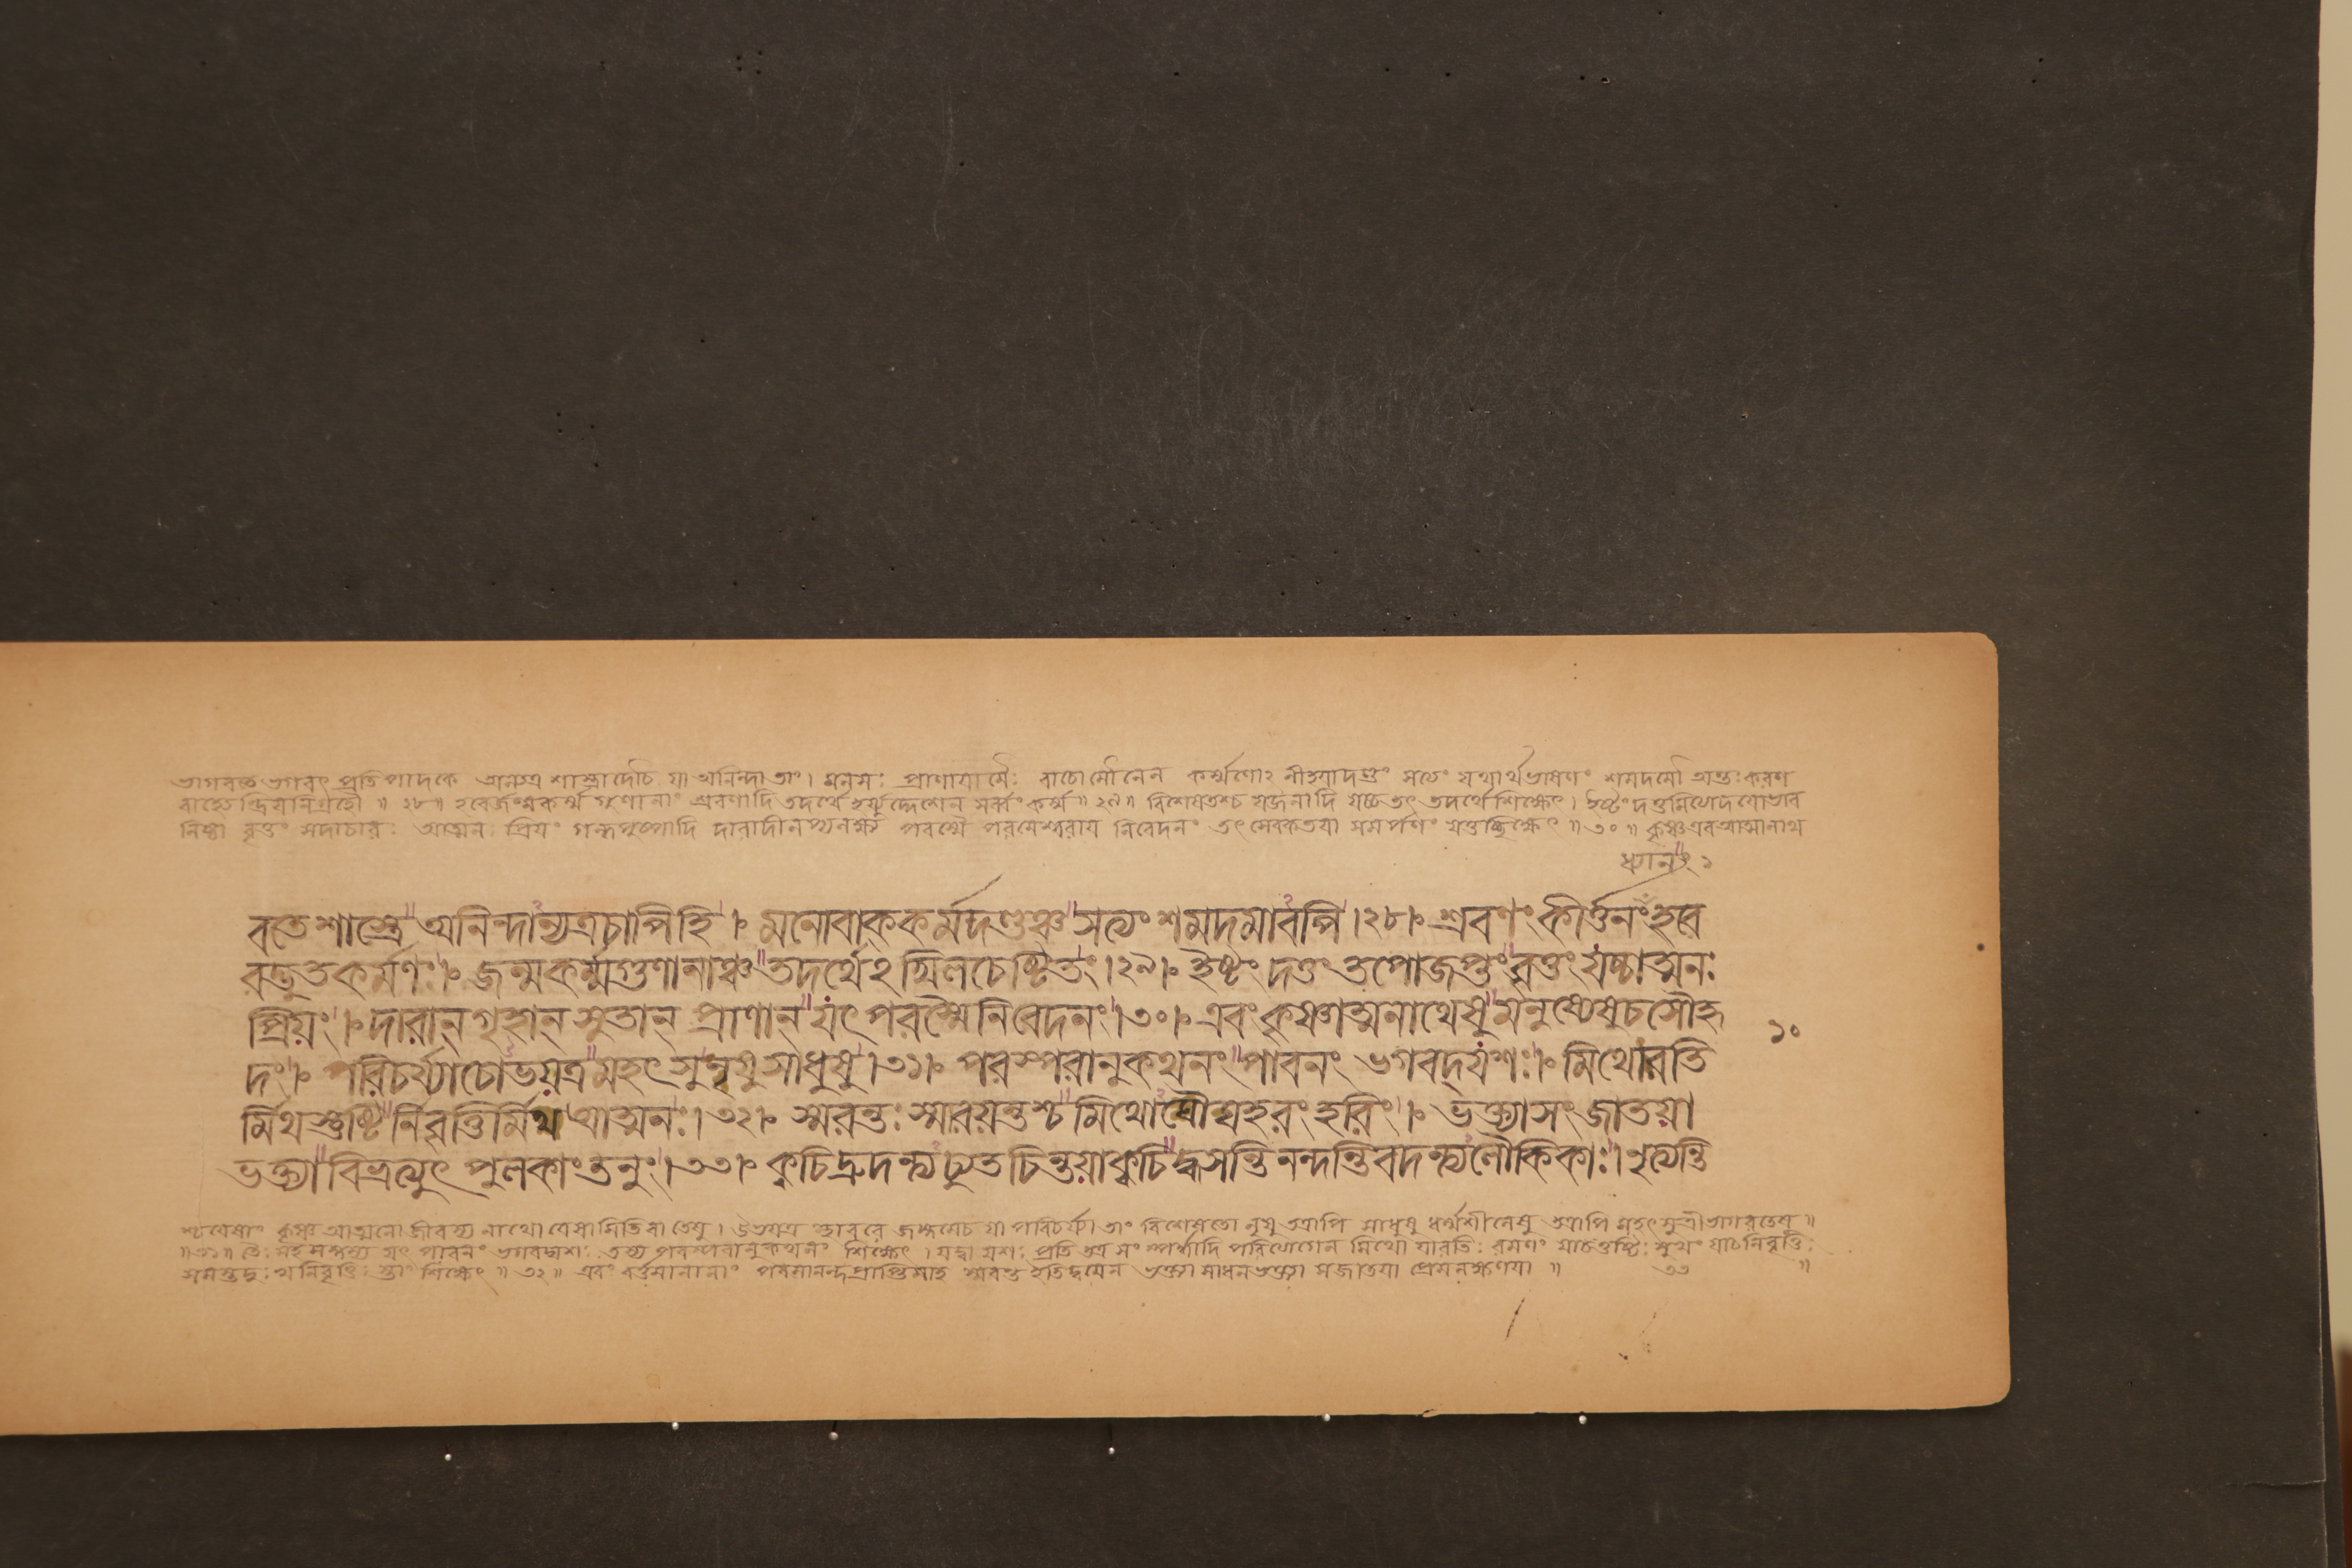 ভাগবতে ভগবৎ প্রতিপাদকে অন্যত্র শাস্ত্রাদৌচ যা অনিন্দা তাং। মনসঃ প্রাণায়ামৈঃ বাচোমৌনেন কর্ম্মণোঽনীহয়াদণ্ডং সত্যং যথার্থভাষণং শমদমৌ অন্তঃকরণ
বাহ্যেন্দ্রিয়নিগ্রহৌ॥২৮॥ হরের্জন্মকর্ম্ম গুণানাং শ্রবণাদি তদর্থে হর্য্যুদ্দেশেন সর্ব্বং কর্ম্ম॥২৯॥ বিশেষতশ্চ যজনাদি যচ্চ তৎ তদর্থে শিক্ষেৎ। ইষ্টং দত্তমিত্যাদয়োভাব
নিষ্ঠা বৃত্তং সদাচারঃ আত্মনঃ প্রিয়ং গন্ধপুষ্পাদি দারাদীনপ্যনক্ষ্য পরস্মৈ পরমেশ্বরায় নিবেদনং তৎ সেবকতয়া সমর্পণং যত্তচ্ছিক্ষেৎ॥৩০॥ কৃষ্ণএবআত্মানাথ
ধ্যানং ১
বতে শাস্ত্রে অনিন্দান্যত্রচাপিহি। মনোবাককর্মদণ্ডঞ্চ সত্যং শমদমাবপি।২৮। শ্রবণং কীর্ত্তনং হরে
রদ্ভুতকর্মণঃ। জন্মকর্ম্মগুণানাঞ্চ তদর্থেঽখিলচেষ্টিতং।২৯। ইষ্টং দত্তং তপোজপ্তং বৃত্তং যচ্চাত্মনঃ
প্রিয়ং। দারান্ গৃহান্ সুতান্ প্রাণান্ যৎ পরস্মৈ নিবেদনং।৩০। এবং কৃষ্ণাত্মনাথেষু মনুষ্যেষুচ সৌহৃ
১০
দং। পরিচর্য্যাচোভয়ত্র মহৎসুনৃষুসাধুষু।৩১। পরস্পরানুকথনং পাবনং ভগবদ্‌যশঃ। মিথোরতি
র্মিথস্তুষ্টি র্নিবৃত্তির্মিথ আত্মনঃ।৩২। স্মরন্তঃ স্মারয়ন্তশ্চ মিথোঘৌঘহরং হরিং। ভক্ত্যাসংজাতয়া
ভক্ত্যা বিভ্রত্যুৎ পুলকাং তনুং।৩৩। ক্বচিদ্রুদন্ত্যচ্যুতচিন্তয়াক্বচিদ্ধসন্তি নন্দন্তি বদন্ত্যলৌকিকাঃ। নৃত্যন্তি
শ্চযেষাং কৃষ্ণ আত্মনো জীবস্য নাথো যেষামিতিবা তেষু। উভয়ত্র স্থাবরে জঙ্গমেচ যা পরিচর্য্যা তাং বিশেষতো নৃষু তত্রাপি সাধুষু ধর্ম্মশীলেষু তত্রাপি মহৎসু শ্রীভাগবতেষু॥
॥৩১॥ তৈঃ সহ সঙ্গত্য যৎ পাবনং ভগবদ্যশঃ তস্য পরস্পরানুকথনং শিক্ষেৎ। যদ্বা যশঃ প্রতি তত্র সংস্পর্দ্ধাদি পরিত্যাগেন মিথো যারতিঃ রমণং যাচতুষ্টিঃ সুখং যাচনিবৃত্তিঃ
সমস্তদুঃখনিবৃত্তিঃ তাং শিক্ষেৎ॥৩২॥ এবং বর্ত্তমানানাং পরমানন্দপ্রাপ্তিমাহ স্মরন্ত ইতিদ্বয়েন ভক্ত্যা সাধনভক্ত্যা সংজাতয়া প্রেমলক্ষণয়া॥ ৩৩ ॥